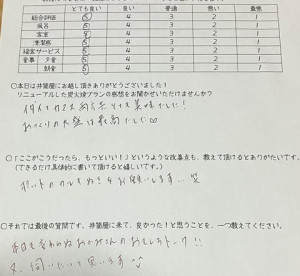 とても良い 良い 普通 悪い 最悪
総合評価 5 4 3 2 1
風呂 5 4 3 2 1
客室 5 4 3 2 1
清潔感 5 4 3 2 1
接客サービス 5 4 3 2 1
食事 夕食 5 4 3 2 1
朝食 5 4 3 2 1
○本日は井筒屋にお越し頂きありがとうございました！
リニューアルした炭火焼プランの感想をお聞かせいただけませんか？
美味でした！
おつくりの大盛は最高でした♡
○「ここがこうだったら、もっといい！」というような改善点も、教えて頂けるとありがたいです。
（できるだけ具体的に書いて頂けると嬉しいです。）
お願いします… 笑
○それでは最後の質問です。井筒屋に来て、良かった！と思うことを、一つ教えてください。
本日も変わらぬおかみさんのおもしろトーク!!
又、伺いたいと思います